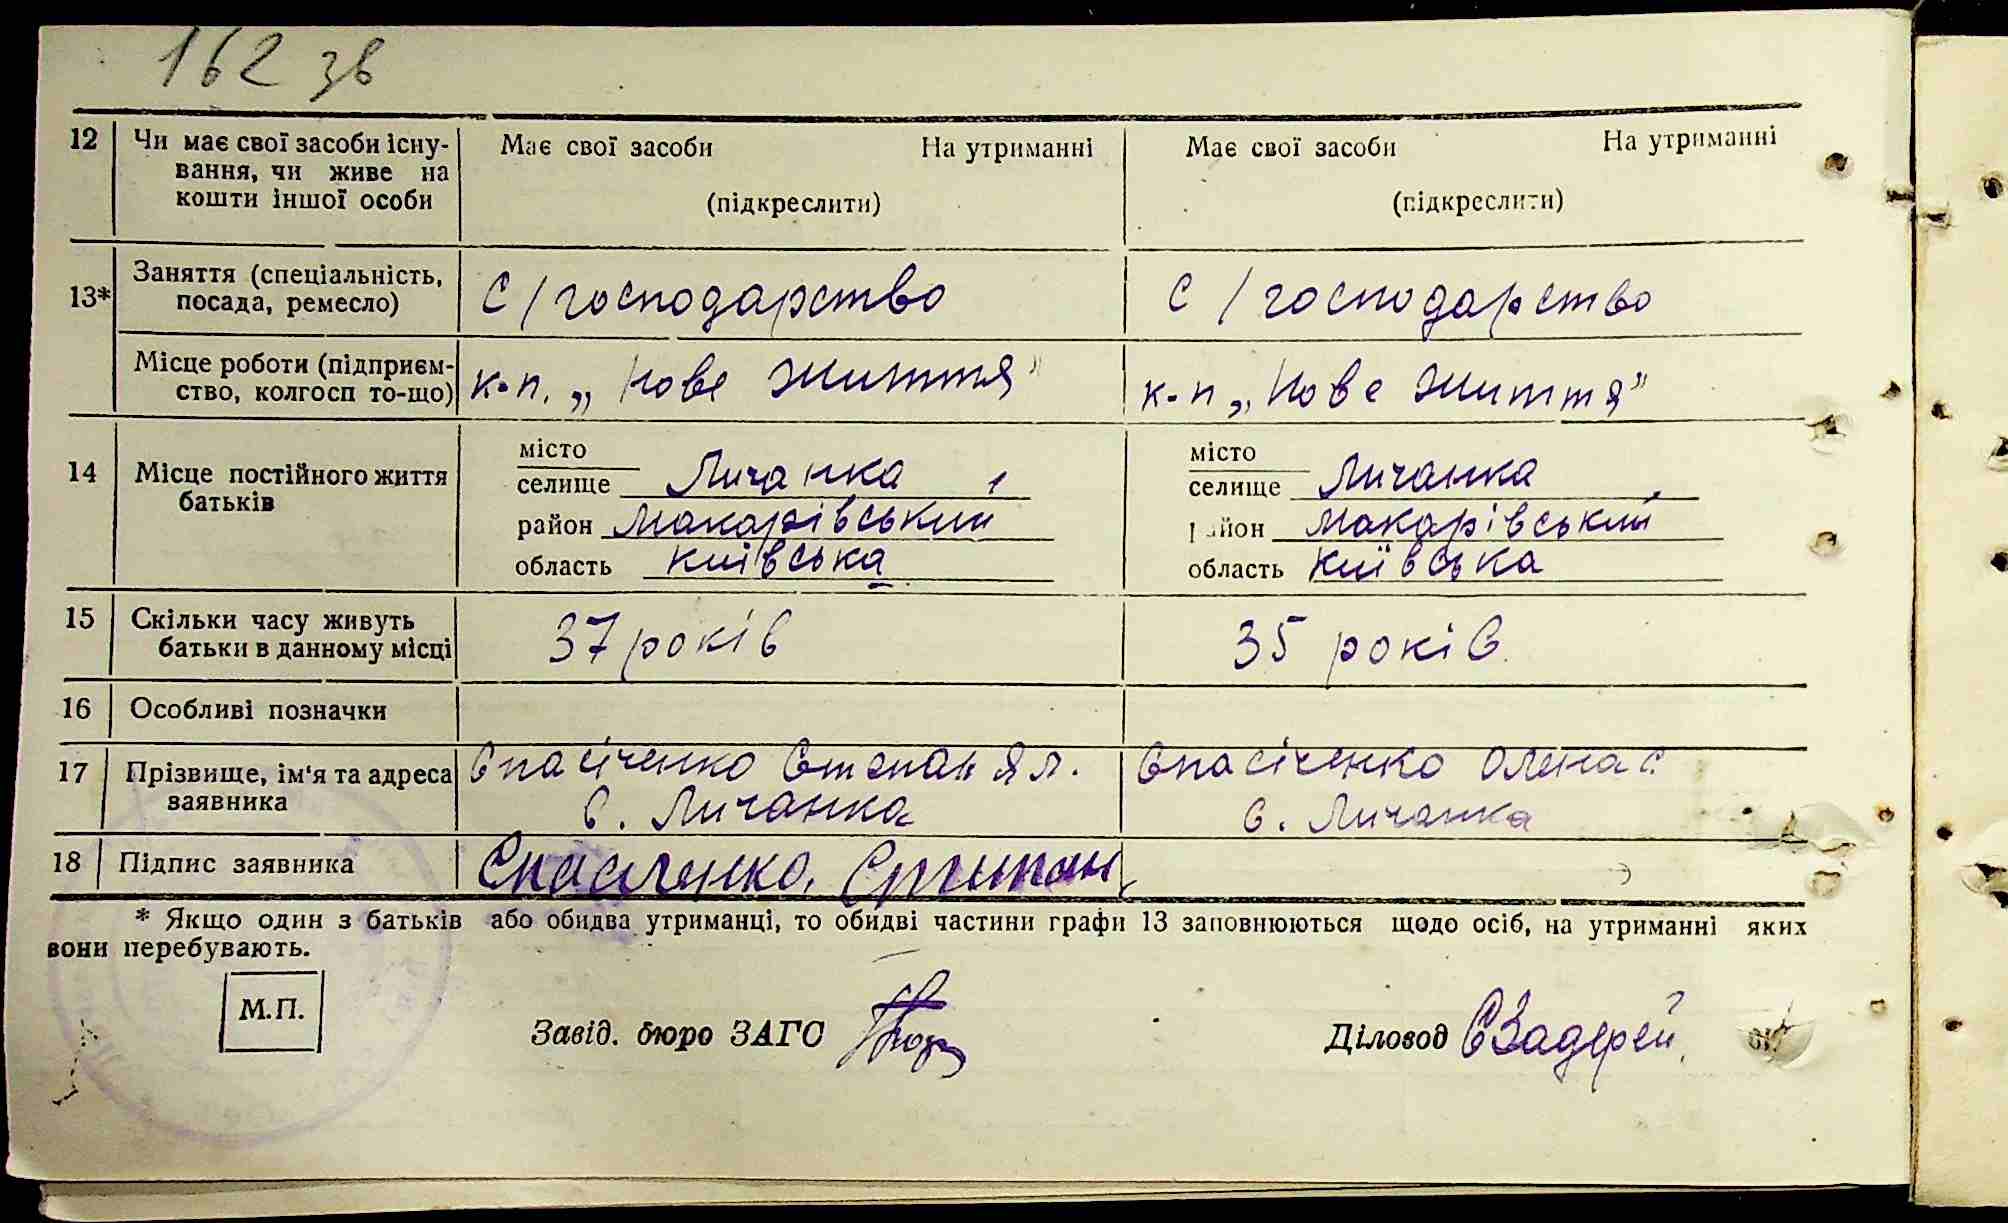 162 зв
12 Чи має свої засоби існу- Має свої засоби На утриманні Має свої засоби На утриманні
вання, чи живе на
кошти іншої особи (підкреслити) (підкреслити)
13* Заняття (спеціальність, посада, ремесло) с/господарство с/господарство
Місце роботи (підприєм-
ство, колгосп то-що) к-п. „Нове життя" к-п „Нове життя"
14 Місце постійного життя батьків
місто місто
селище Личанка, селище Личанка,
район Макарівський район Макарівський
область Київська область Київська
15 Скільки часу живуть
батьки в данному місці 37 років 35 років
16 Особливі позначки
17 Прізвище, ім'я та адреса Спасіченко Степан Ял. Спасіченко Олена С.
заявника с. Личанка с. Личанка
18 Підпис заявника Спасіченко, Степан
* Якщо один з батьків або обидва утриманці, то обидві частини графи 13 заповнюються щодо осіб, на утриманні яких
вони перебувають.
М.П.
Завід. бюро ЗАГС Діловод СЗадерей